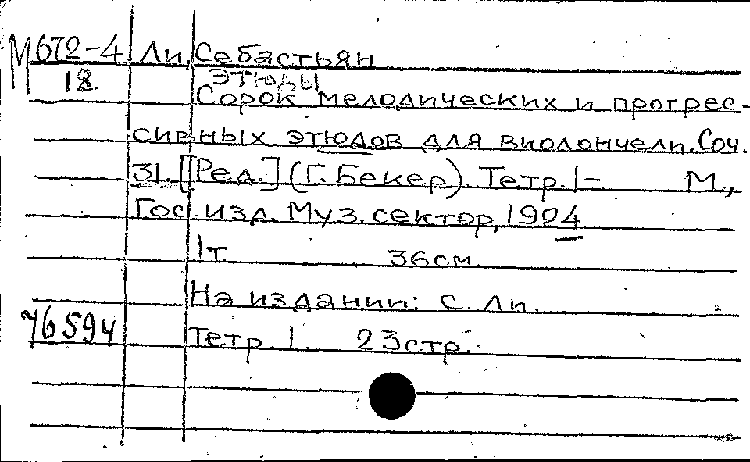 М672-4 Ли Себастьян
18 этюды
Сорок мелодических и прогрес-
сивных этюдов для виолончели. Соч.
31. [Ред.] (Г. Бекер). Тетр. 1- М.,
Гос. изд. Муз. сектор, 1904
1т. 36см.
На издании: С. Ли.
76594 Тетр. 1. 23стр.